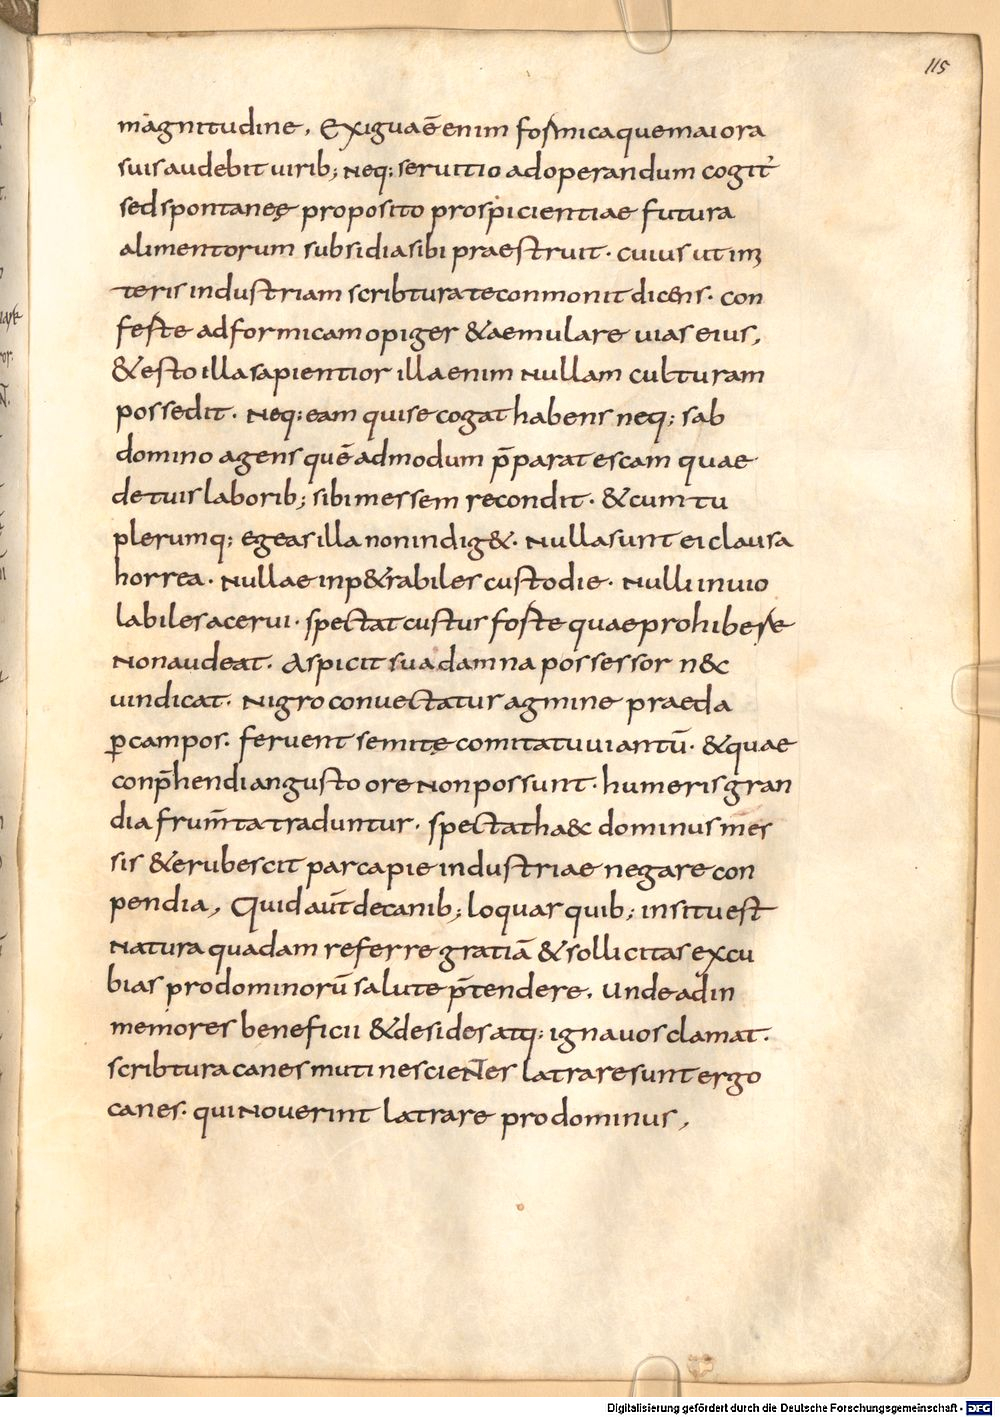 115
magnitudine, Exigua ē enim formica quem aiora
suis audebit uirib; neq; seruitio adoperandum cogit̉
sed spontaneę proposito prospicientiae futura
alimentorum subsidia sibi praestruit· cuius ut im
teris industriam scribtura te conmonit dicens· con
feste ad formicam o piger &aemulare uias eius,
&esto illa sapientior illa enim nullam culturam
possedit· neq; eam qui se cogat habens neq; sab
domino agens quē admodum p̄parat escam quae
de tuis laborib; sibi messem recondit· &cum tu
plerumq; egeas illa non indig&· nulla sunt ei clausa
horrea· nullae inp&rabiles custodie· nulli inuio
labiles acerui· spectat custur foste quae prohibere
non audeat. Aspicit sua damna possessor n&c
uindicat. nigro conuectatur agmine praeda
ꝑ campos· feruent semitę comitatu uiantū· &quae
conp̄hendi angusto ore non possunt· humeris gran
dia frum̄ta traduntur· spectat ha&c dominus mes
sis &erubescit parca pie industriae negare con
pendia, Quid aūt de canib; loquar quib; insitu est
natura quadam referre gratiā &sollicitas excu
bias pro dominorū salute p̄tendere. Unde ad in
memores beneficii &desides atq; ignauos clamat·
scribtura canes muti nescientes latrare sunt ergo
canes· qui nouerint latrare pro dominus,
Digitalisierung gefördert durch die Deutsche Forschungsgemeinschaft - DFG